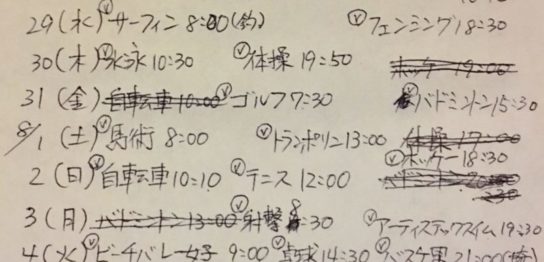 29(水)ⓥサーフィン 8:00(釣) ⓥフェンシング18:30
30(木)ⓥ水泳10:30 ⓥ体操 19:50 ホッケー 19:00
31(金)自転車10:00ⓥゴルフ7:30 バドミントン15:30
8/1(土)ⓥ馬術 8:00 ⓥトランポリン13:00 体操17:00
ⓥホッケー18:30
2(日)ⓥ自転車10:10 ⓥテニス 12:00 バドミントン
3(月)バドミントン13:00ⓥ射撃8:30 ⓥアーティスティックスイム19:30
4(火)ⓥビーチバレー女子 9:00ⓥ卓球14:30ⓥバスケ男21:00(埼)